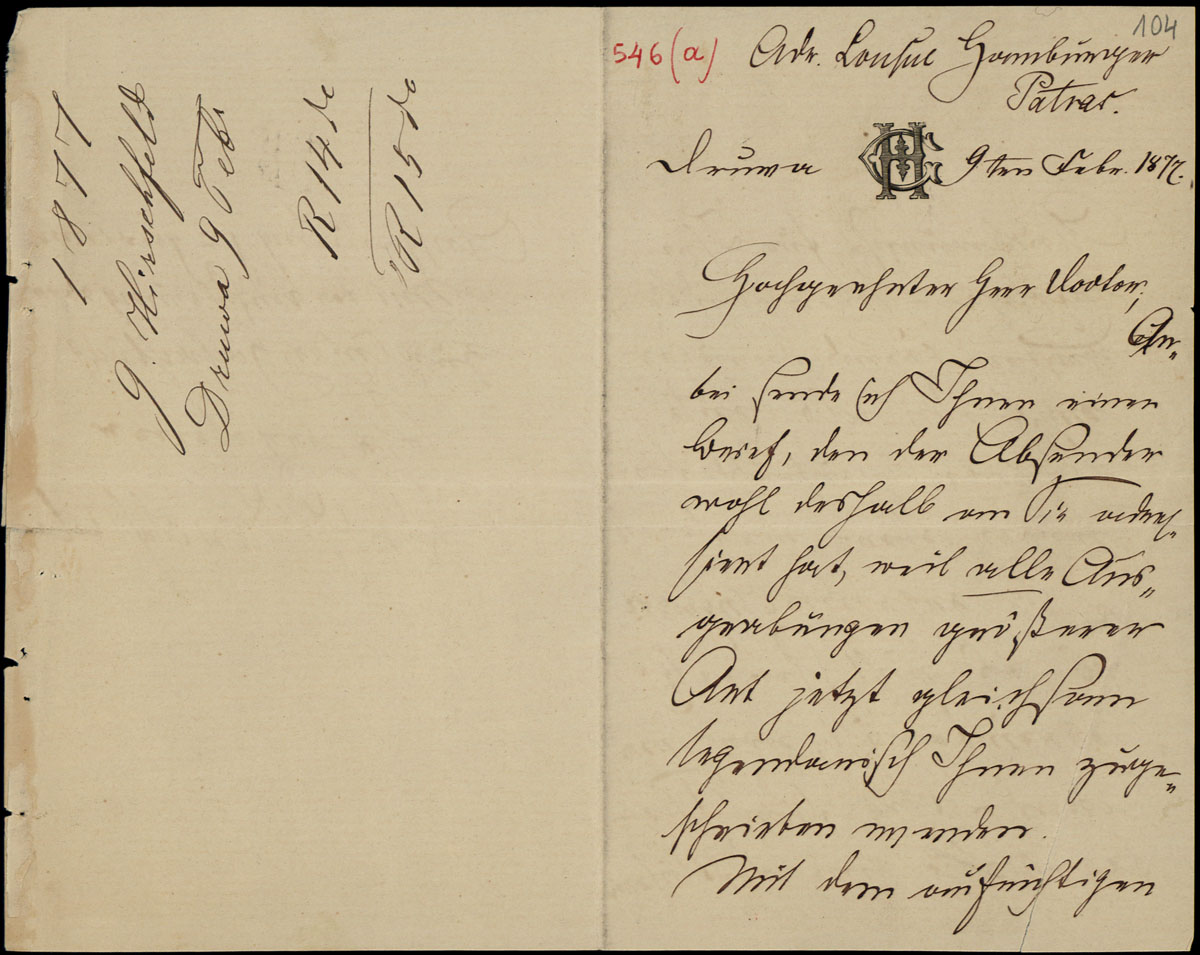 1877
G. Hirschfeld
Druwa 9 Feb.
R 14 do
R 15 do
104
546 (a)
Adr. Consul Hamburger
Patras.
Druwa 9ten Febr. 1877.
Hochgeehrter Herr Doctor,
An-
bei sende ich Ihnen einen
Brief, den der Absender
wohl deshalb an Sie adres-
sirt hat, weil alle Aus-
grabungen größerer
Art jetzt gleichsam
legendarisch Ihnen zuge-
schrieben werden.
Mit dem aufrichtigen